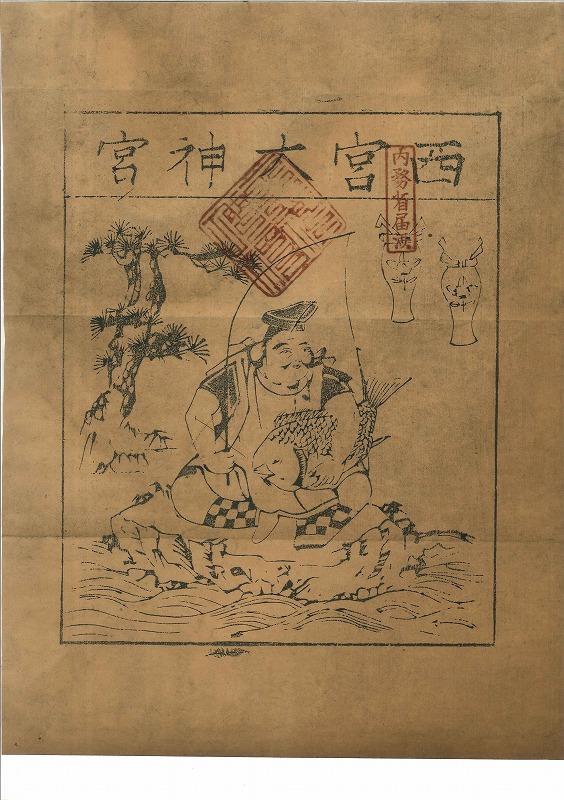 西宮大神宮
内務省届済